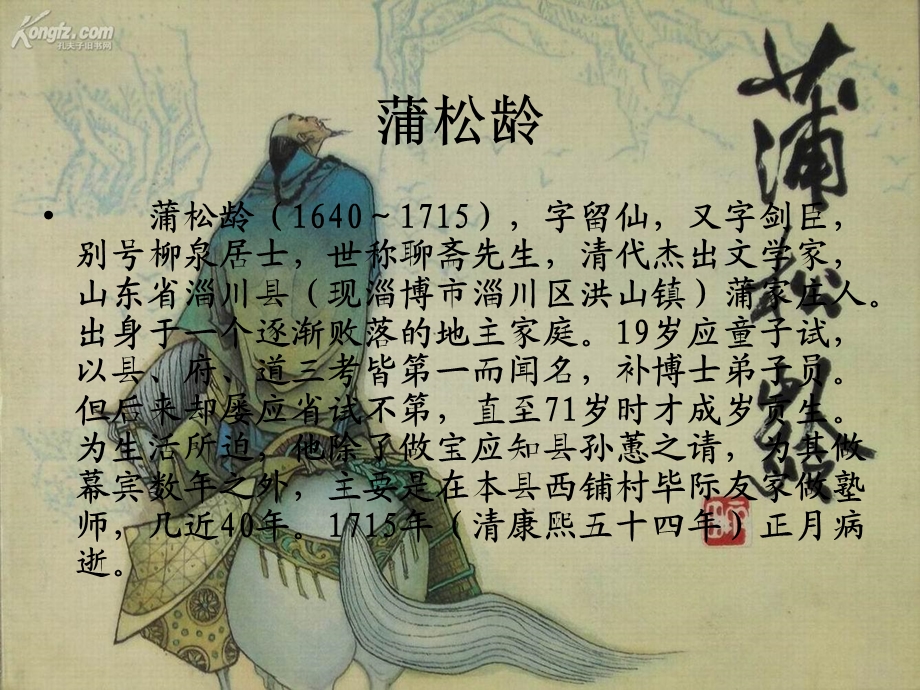 Kongfz.com
孔夫子旧书网
蒲松龄
蒲松龄
• 蒲松龄（1640～1715），字留仙，又字剑臣，
别号柳泉居士，世称聊斋先生，清代杰出文学家，
山东省淄川县（现淄博市淄川区洪山镇）蒲家庄人。
出身于一个逐渐败落的地主家庭。19岁应童子试，
以县、府、道三考皆第一而闻名，补博士弟子员。
但后来却屡应省试不第，直至71岁时才成岁贡生。
为生活所迫，他除了做宝应知县孙蕙之请，为其做
幕宾数年之外，主要是在本县西铺村毕际友家做塾
师，几近40年。1715年（清康熙五十四年）正月病
逝。